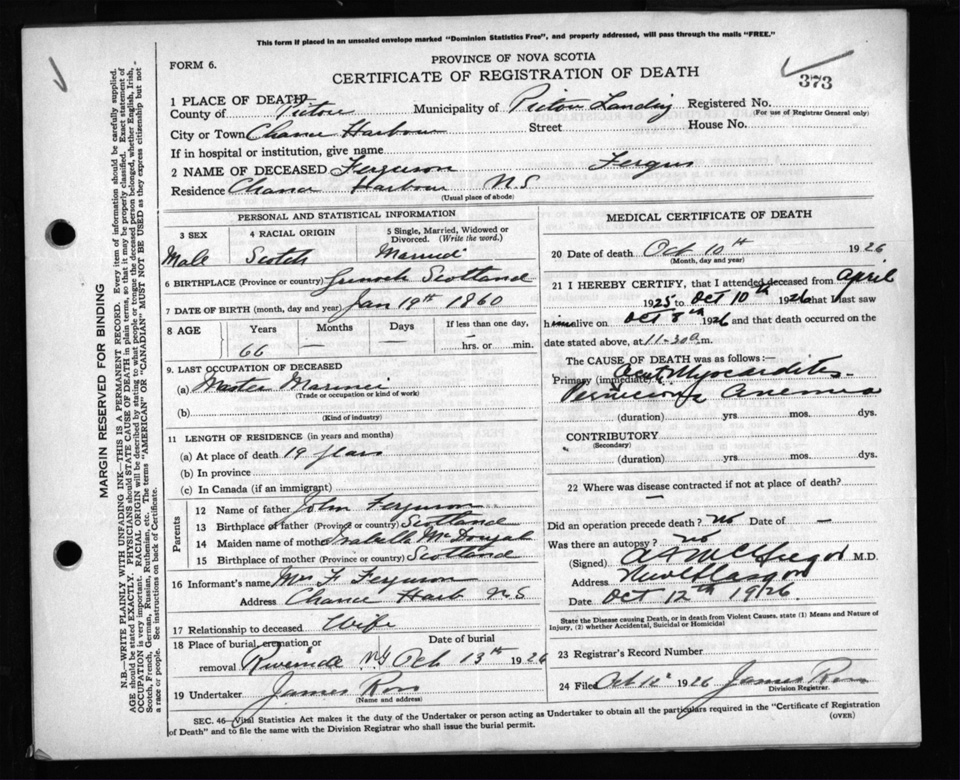 This form if placed in an unsealed envelope marked "Dominion Statistics Free", and properly addressed, will pass through the mails "FREE."
FORM 6.
PROVINCE OF NOVA SCOTIA
CERTIFICATE OF REGISTRATION OF DEATH
373
1 PLACE OF DEATH
County of Pictou Municipality of Pictou Landing Registered No.
(For use of Registrar General only)
City or Town Chance Harbour Street House No.
If in hospital or institution, give name
2 NAME OF DECEASED Ferguson Fergus
Residence Chance Harbour N.S
(Usual place of abode)
PERSONAL AND STATISTICAL INFORMATION
3 SEX 4 RACIAL ORIGIN 5 Single, Married, Widowed or Divorced. (Write the word.)
Male Scotch Married
6 BIRTHPLACE (Province or country) Scotland
7 DATE OF BIRTH (month, day and year) Jan 19th 1860
8 AGE Years Months Days If less than one day,
66 — — hrs. or min.
9. LAST OCCUPATION OF DECEASED
(a) Master Mariner
(Trade or occupation or kind of work)
(b)
(Kind of industry)
11 LENGTH OF RESIDENCE (in years and months)
(a) At place of death 19 years
(b) In province
(c) In Canada (if an immigrant)
Parents
12 Name of father John Ferguson
13 Birthplace of father (Province or country) Scotland
14 Maiden name of mother Isabella McDougall
15 Birthplace of mother (Province or country) Scotland
16 Informant's name Mrs F Ferguson
Address Chance Harb NS
17 Relationship to deceased Wife
18 Place of burial, cremation or removal Date of burial
Riverside NS Oct 13th 1926
19 Undertaker James Ross
(Name and address)
MEDICAL CERTIFICATE OF DEATH
20 Date of death Oct 10th 1926
(Month, day and year)
21 I HEREBY CERTIFY, that I attended deceased from April
1925 to Oct 10th 1926 that I last saw
him alive on Oct 8th 1926 and that death occurred on the
date stated above, at 11-30 a m.
The CAUSE OF DEATH was as follows:—
Primary (immediate) Acute Myocarditis
Pernicious Anemia
(duration) yrs. mos. dys.
CONTRIBUTORY
(Secondary)
(duration) yrs. mos. dys.
22 Where was disease contracted if not at place of death?
—
Did an operation precede death? No Date of —
Was there an autopsy? No
(Signed) McGregor M.D.
Address New Glasgow
Date Oct 12th 1926.
State the Disease causing Death, or in death from Violent Causes, state (1) Means and Nature of
Injury, (2) whether Accidental, Suicidal or Homicidal
23 Registrar's Record Number
24 Filed Oct 12 1926 James Ross
Division Registrar.
SEC. 46—Vital Statistics Act makes it the duty of the Undertaker or person acting as Undertaker to obtain all the particulars required in the "Certificate of Registration
of Death" and to file the same with the Division Registrar who shall issue the burial permit.
(OVER)
MARGIN RESERVED FOR BINDING
N.B.—WRITE PLAINLY WITH UNFADING INK—THIS IS A PERMANENT RECORD. Every item of information should be carefully supplied.
AGE should be stated EXACTLY. PHYSICIANS should STATE CAUSE OF DEATH in plain terms, so that it may be properly classified. Exact statement of
OCCUPATION is very important. RACIAL ORIGIN will be described by stating to what people or tongue the deceased person belonged, whether English, Irish,
Scotch, French, German, Russian, Ruthenian, etc. The terms "AMERICAN" OR "CANADIAN" MUST NOT BE USED as they express citizenship but not
a race or people. See instructions on back of Certificate.